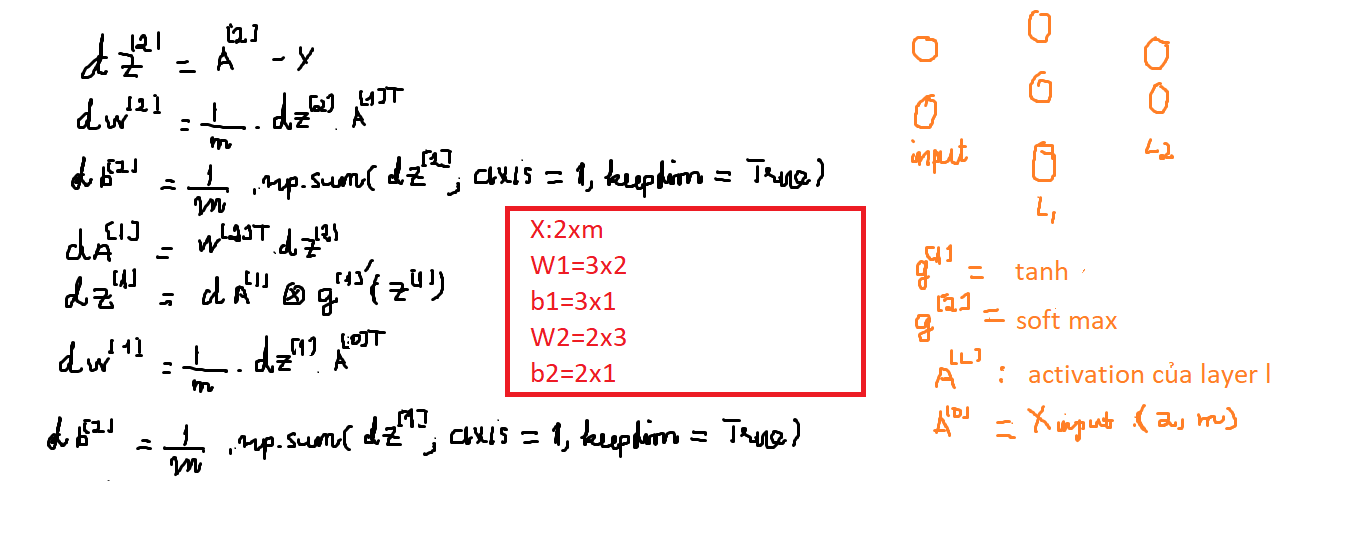 dZ^[2] = A^[2] - Y
dw^[2] = 1/m . dz^[2] . A^[1]T
db^[2] = 1/m .np.sum( dz^[2], axis = 1, keepdim = True)
dA^[1] = w^[2]T . dz^[2]
dz^[1] = dA^[1] ⊗ g^[1]'(z^[1])
dw^[1] = 1/m . dz^[1] A^[0]T
db^[1] = 1/m .np.sum( dz^[1], axis = 1, keepdim = True)
X:2xm
W1=3x2
b1=3x1
W2=2x3
b2=2x1
input
L1
L2
g^[1] = tanh
g^[2] = soft max
A^[L] : activation của layer l
A^[0] = X input (2, m)